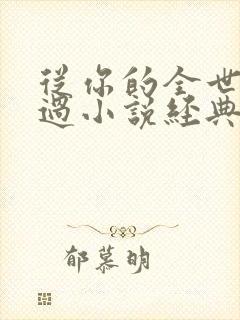 從你的全世
過小說經典
郁慕明